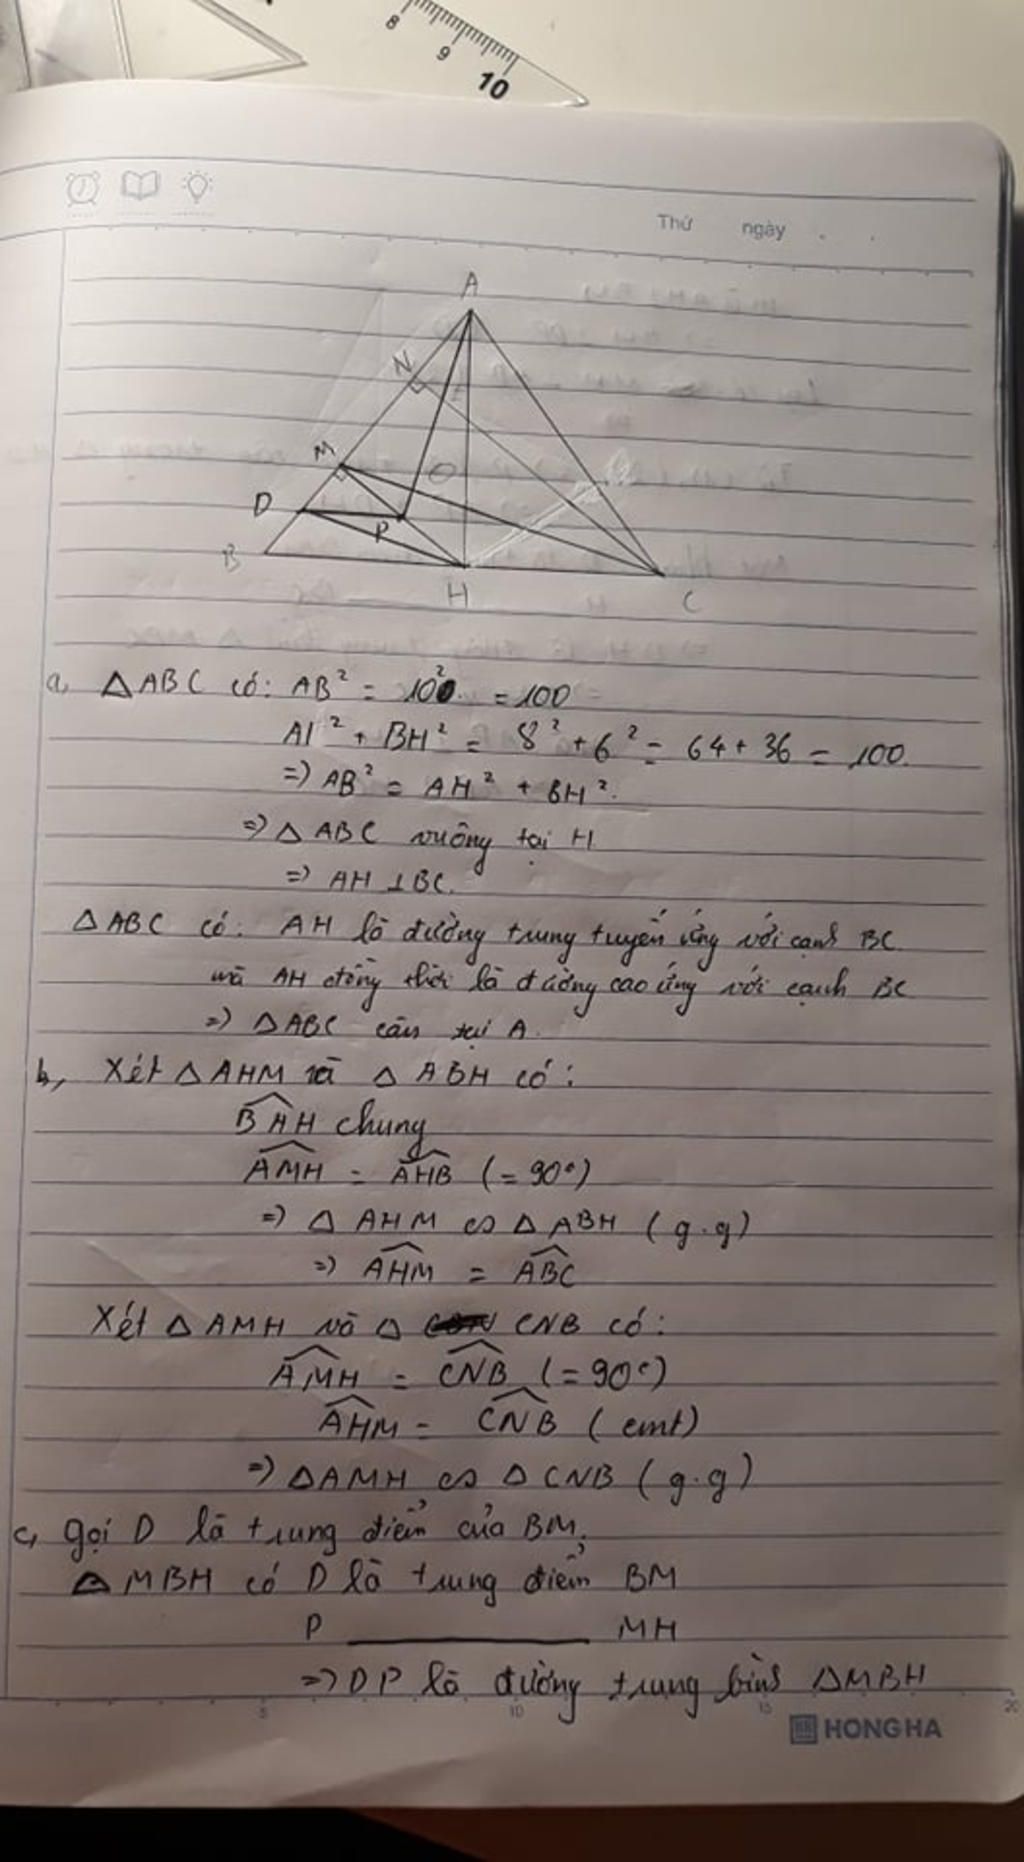 8
9
10
Thứ ngày . .
A
N
M
O
D
P
B
H
C
a, △ABC có: AB² = 10² = 100
AI² + BH² = 8² + 6² = 64 + 36 = 100.
=> AB² = AH² + BH².
=> △ ABC vuông tại H
=> AH ⊥ BC.
△ABC có: AH là đường trung tuyến ứng với cạnh BC
mà AH đồng thời là đường cao ứng với cạnh BC
=> △ABC cân tại A.
b, Xét △AHM và △ ABH có:
B̂AH chung
ÂMH = ÂHB (= 90°)
=> △ AHM ∽ △ABH (g.g)
=> ÂHM = ÂBC
Xét △AMH và △ CNB có:
ÂMH = ĈNB (= 90°)
ÂHM = ĈNB (cmt)
=> △AMH ∽ △CNB (g.g)
c, gọi D là trung điểm của BM.
△MBH có D là trung điểm BM
P ———— MH
=> DP là đường trung bình △MBH
5 10 15 20
HONG HA